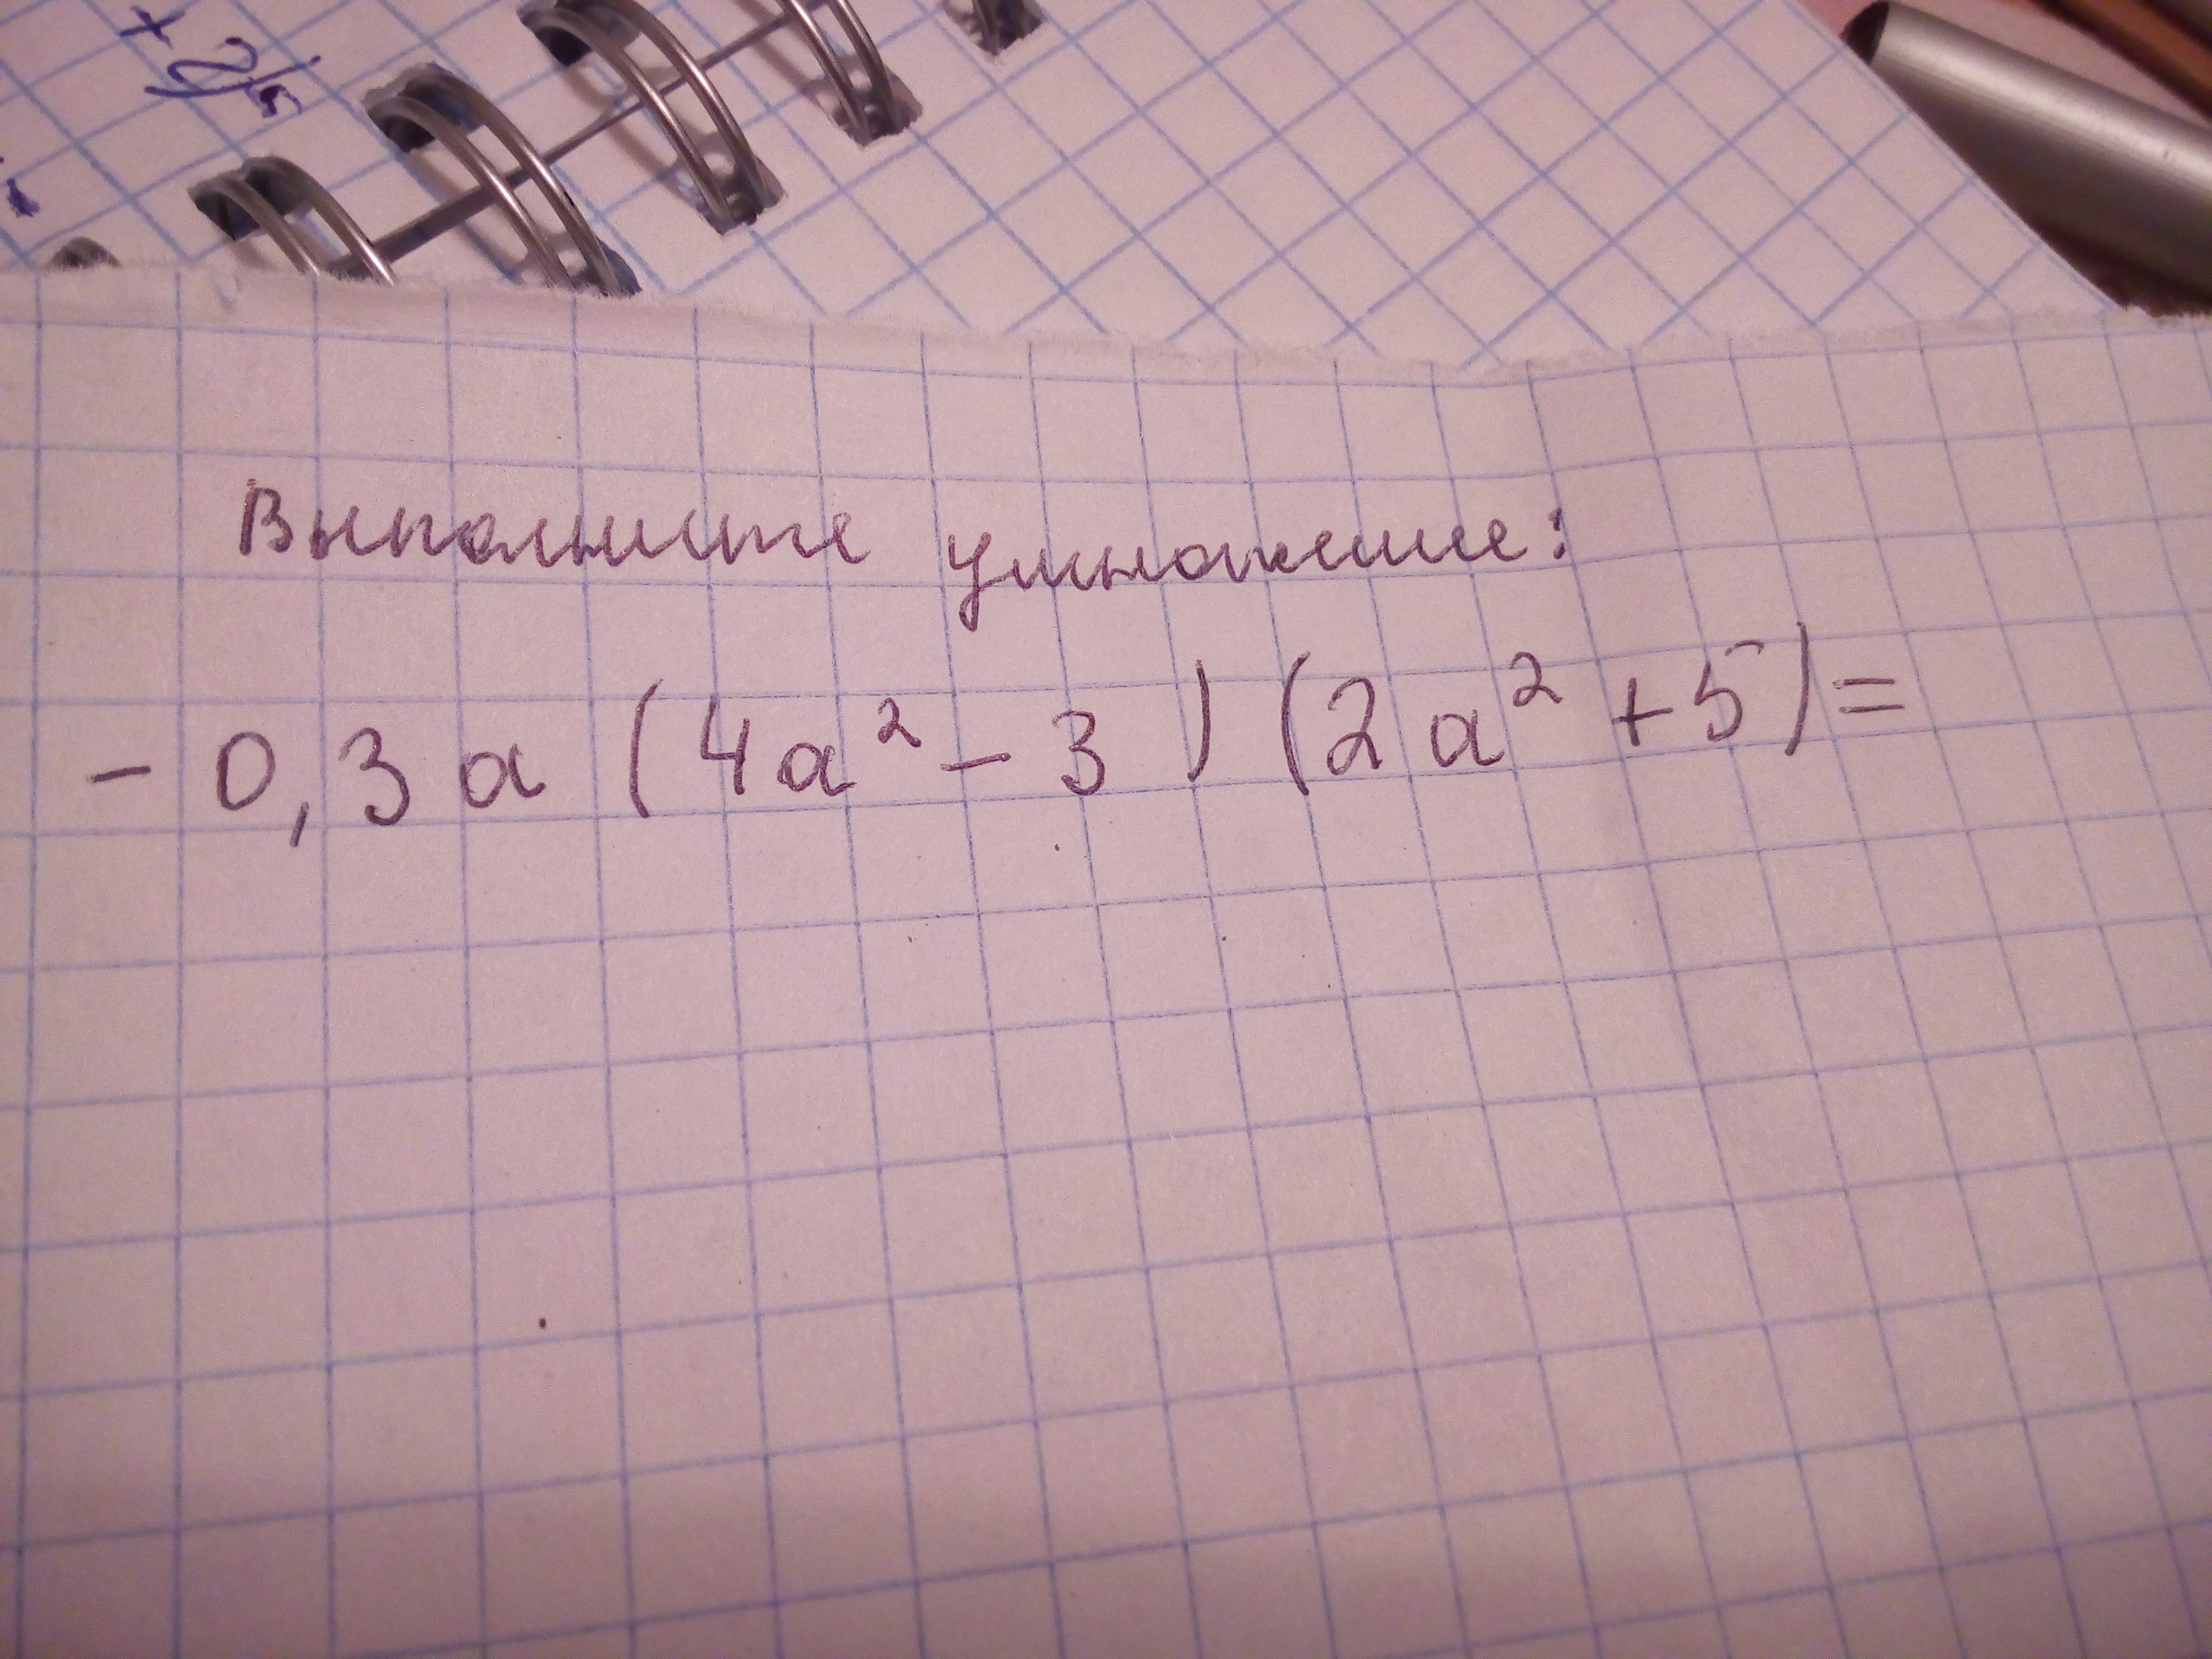 Выполните умножение:
- 0,3a (4a² - 3) (2a² + 5) =